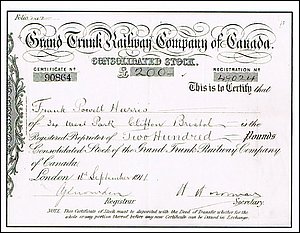 Folio
Grand Trunk Railway Company of Canada.
CONSOLIDATED STOCK.
CERTIFICATE No
90864
£200
REGISTRATION No
49024
This is to Certify that
Frank Powell Harris
of West Park Clifton Bristol is the
Registered Proprietor of Two Hundred Pounds
Consolidated Stock of the Grand Trunk Railway Company
of Canada.
London 18th September 1911.
Registrar
Secretary.
NOTE. This Certificate of Stock must be deposited with the Deed of Transfer whether for the
whole or any portion thereof before any new Certificate can be issued in Exchange.